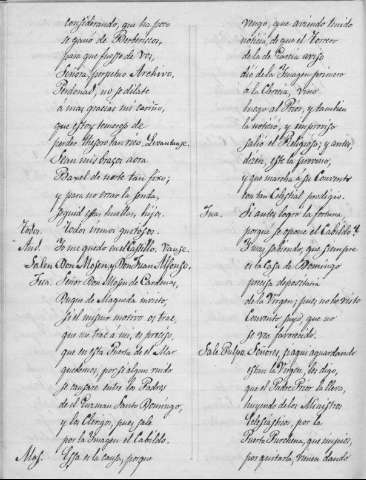 considerando, que ha poco
se ganó de Berberiscos,
para que fuesse de Vos,
Señora, perpetuo Archivo,
Perdonad, no se dilate
a mas gracias mi cariño,
que estoy temeroso de
perder thesoro tan rico. Levantanse.
Sean mis brazos aora
de norte tan fixo;
y para no errar la senda,
seguid estas huellas, hijos.
Todos. Todos iremos gustosos.
And. Yo me quedo en el Castillo. Vanse.
Salen Don Mosen, y Don Juan Alfonso.
Jua. Señor Don Mosen de Cardenas,
Duque de Maqueda invicto,
si el mismo motivo os trae,
que no trae á mi, es preciso,
que en esta Puerta de el Mar
quedemos, por si algun ruido
se causare entre los Padres
de el Guzman Santo Domingo,
y los Clerigos, pues sale
por la Imagen el Cabildo.
Mos. Essa es la causa, porque
vengo, que aviendo tenido
noticia, de que el Torrero
de la de Garcia aviso
dió de la Imagen primero
a la Clerecia, vino
luego al Prior, y tambien
la notició, y improviso
salió el Religioso; y antes
dicen, este la previno,
y que marcha á su Convento
con tan Celestial prodigio.
Jua. Si antes logró la fortuna,
porque se opone el Cabildo?
Pues sabiendo, que siempre
es la Casa de Domingo
precisa depositaria
de la Virgen; pues no he visto
Convento suyo, que no
se vea favorecido.
Sale Pulpo. Señores, si aqui aguardando
estan la Virgen, les digo,
que el Padre Prior la lleva,
huyendo de los Ministros
Eclesiasticos, por la
Puerta Purchena, que impios,
por quitarla, vienen dando